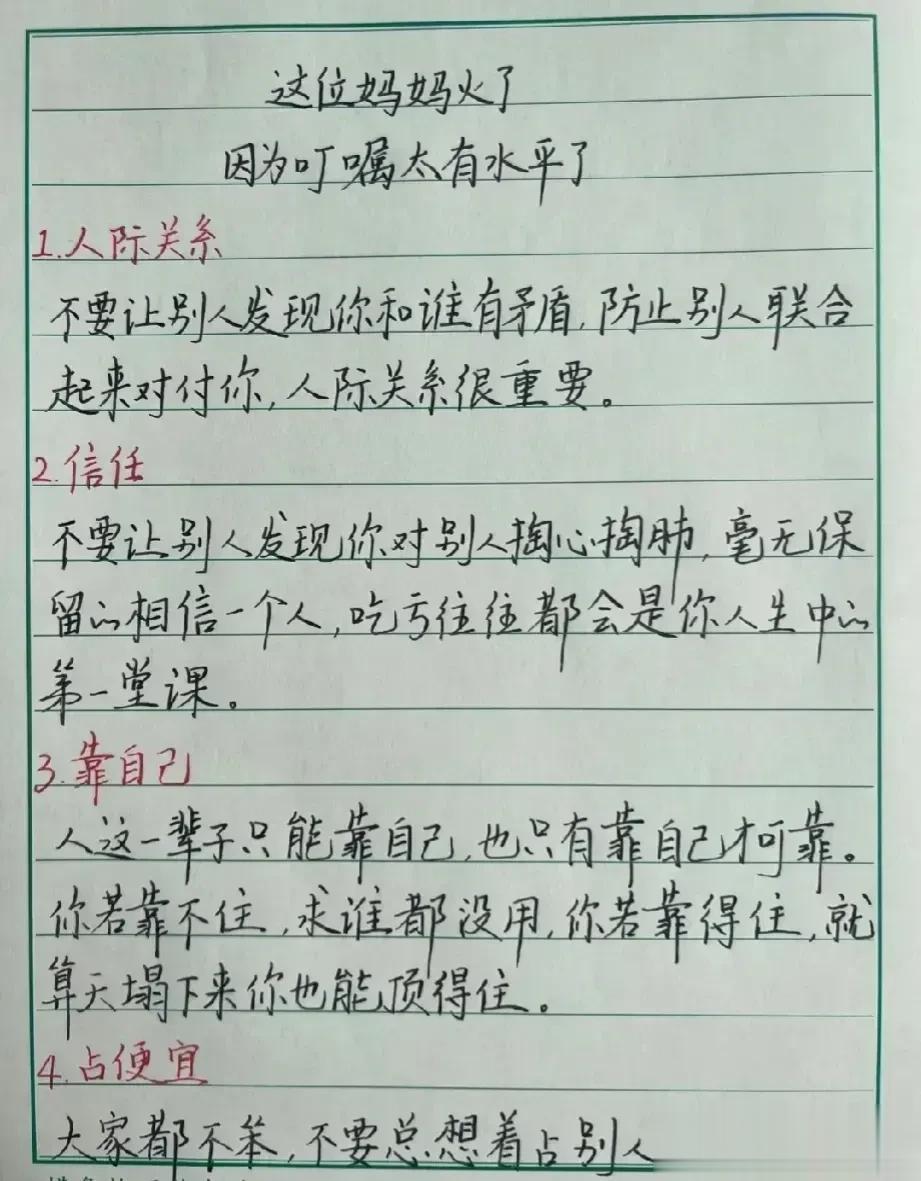 这位妈妈火了
因为叮嘱太有水平了
1.人际关系
不要让别人发现你和谁有矛盾,防止别人联合
起来对付你,人际关系很重要。
2.信任
不要让别人发现你对别人掏心掏肺,毫无保
留的相信一个人,吃亏往往都会是你人生中的
第一堂课。
3.靠自己
人这一辈子只能靠自己,也只有靠自己才可靠。
你若靠不住,求谁都没用,你若靠得住,就
算天塌下来你也能顶得住。
4.占便宜
大家都不笨,不要总想着占别人